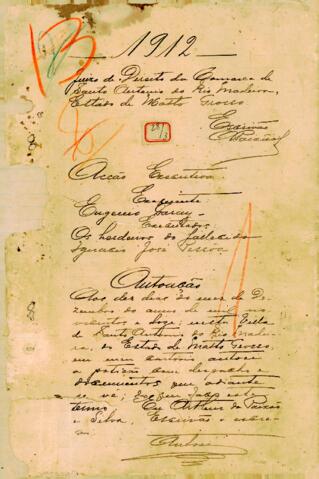 13
1912
Juizo de Direito da Comarca de
Santo Antonio do Rio Madeira,
Estado de Matto Grosso
Escrivão
Acção Executiva
Exequente
Eugenio
Executados
Os herdeiros do fallecido
Ignacio José
Autoação
Aos dez dias do mez de De-
zembro do anno de mil no-
vecentos e doze, nesta Villa
de Santo Antonio do Rio Madei-
ra, do Estado de Matto Grosso,
em meu cartorio autuo
a petição com despacho e
documentos que adiante
se vê; do que faço este
termo. Eu Arthur da Paixão
e Silva, Escrivão o escre-
vi.